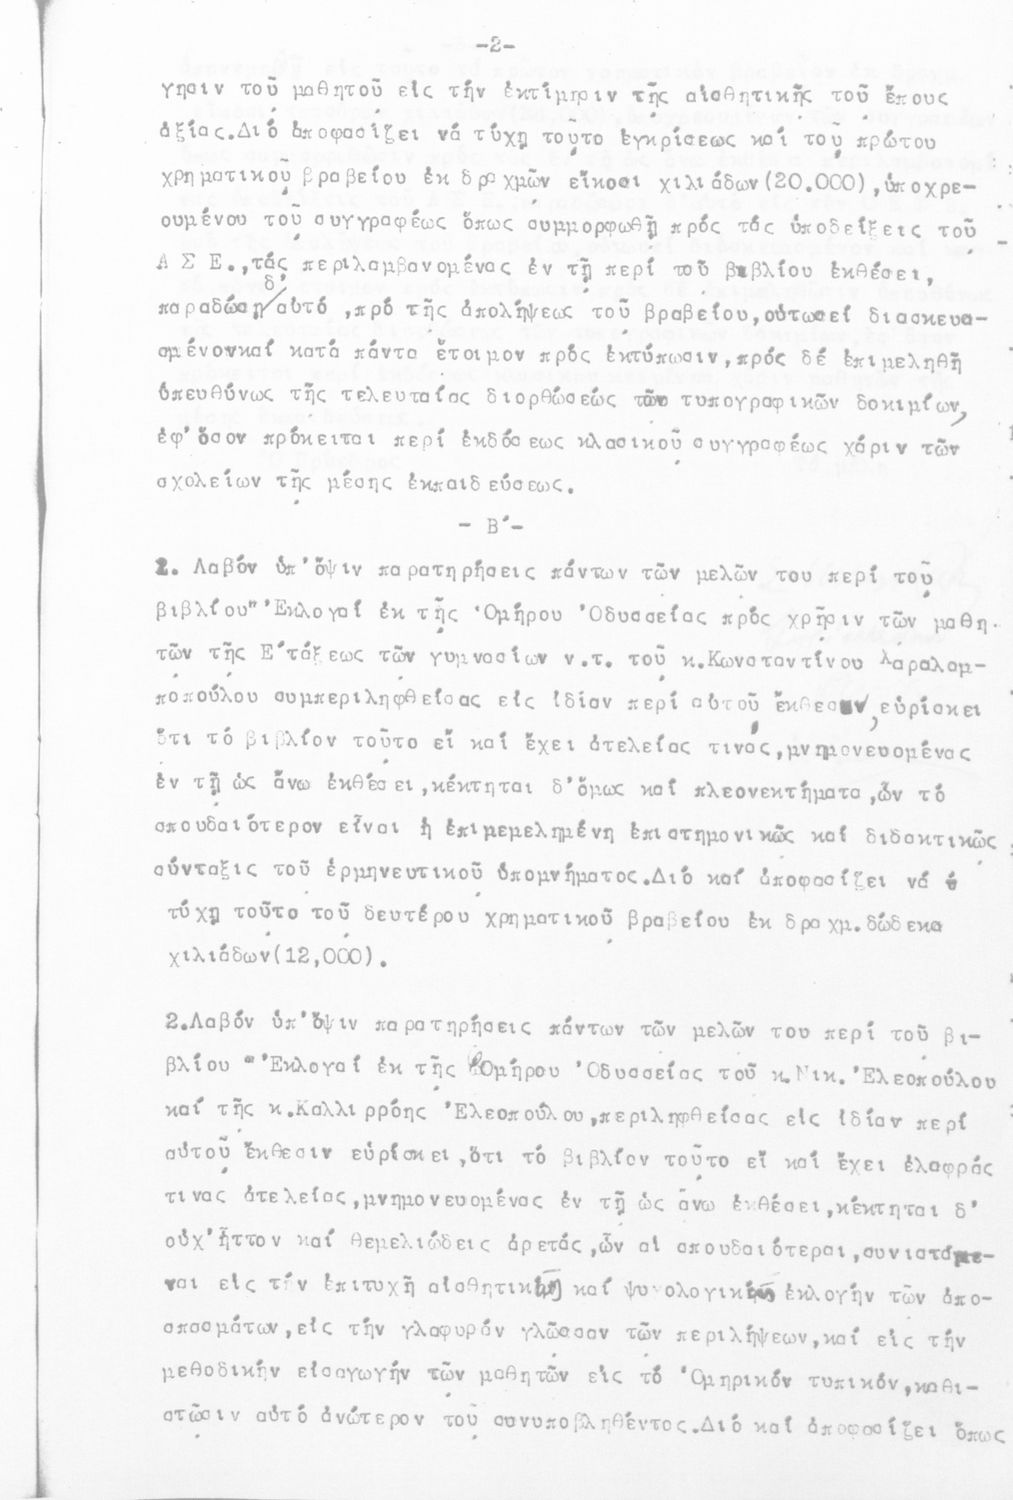 -2-
γησιν τοῦ μαθητοῦ εἰς τήν ἐκτίμησιν τῆς αἰσθητικῆς τοῦ ἔπους
ἀξίας.Διό ἀποφασίζει νά τύχῃ τοῦτο ἐγκρίσεως καί τοῦ πρώτου
χρηματικοῦ βραβείου ἐκ δραχμῶν εἴκοσι χιλιάδων(20.000),ὑποχρε-
ουμένου τοῦ συγγραφέως ὅπως συμμορφωθῇ πρός τάς ὑποδείξεις τοῦ
Α Σ Ε.,τάς περιλαμβανομένας ἐν τῇ περί τοῦ βιβλίου ἐκθέσει,
παραδώσῃ δ' αὐτό ,πρό τῆς ἀπολήψεως τοῦ βραβείου,οὑτωσεί διασκευα-
σμένονκαί κατά πάντα ἕτοιμον πρός ἐκτύπωσιν,πρός δέ ἐπιμεληθῇ
ὑπευθύνως τῆς τελευταίας διορθώσεώς τῶν τυπογραφικῶν δοκιμίων,
ἐφ'ὅσον πρόκειται περί ἐκδόσεως κλασικοῦ συγγραφέως χάριν τῶν
σχολείων τῆς μέσης ἐκπαιδεύσεως.
- Β'-
1. Λαβόν ὑπ'ὄψιν παρατηρήσεις πάντων τῶν μελῶν του περί τοῦ
βιβλίου" Ἐκλογαί ἐκ τῆς Ὁμήρου Ὀδυσσείας πρός χρῆσιν τῶν μαθη-
τῶν τῆς Ε'τάξεως τῶν γυμνασίων ν.τ. τοῦ κ.Κωνσταντίνου Χαραλαμ-
ποπούλου συμπεριληφθείσας εἰς ἰδίαν περί αὐτοῦ ἔκθεσιν,εὑρίσκει
ὅτι τό βιβλίον τοῦτο εἰ καί ἔχει ἀτελείας τινάς,μνημονευομένας
ἐν τῇ ὡς ἄνω ἐκθέσει,κέκτηται δ'ὅμως καί πλεονεκτήματα,ὧν τό
σπουδαιότερον εἶναι ἡ ἐπιμεμελημένη ἐπιστημονικῶς καί διδακτικῶς
σύνταξις τοῦ ἑρμηνευτικοῦ ὑπομνήματος.Διό καί ἀποφασίζει νά
τύχῃ τοῦτο τοῦ δευτέρου χρηματικοῦ βραβείου ἐκ δραχμ.δώδεκα
χιλιάδων(12,000).
2.Λαβόν ὑπ'ὄψιν παρατηρήσεις πάντων τῶν μελῶν του περί τοῦ βι-
βλίου " Ἐκλογαί ἐκ τῆς Ὁμήρου Ὀδυσσείας τοῦ κ.Νικ. Ἐλεοπούλου
καί τῆς κ.Καλλιρρόης Ἐλεοπούλου,περιληφθείσας εἰς ἰδίαν περί
αὐτοῦ ἔκθεσιν εὑρίσκει ,ὅτι τό βιβλίον τοῦτο εἰ καί ἔχει ἐλαφράς
τινας ἀτελείας,μνημονευομένας ἐν τῇ ὡς ἄνω ἐκθέσει,κέκτηται δ'
οὐχ'ἧττον καί θεμελιώδεις ἀρετάς,ὧν αἱ σπουδαιότεραι,συνιστάμε-
ναι εἰς τήν ἐπιτυχῆ αἰσθητικῶς καί ψυχολογικῶς ἐκλογήν τῶν ἀπο-
σπασμάτων,εἰς τήν γλαφυράν γλῶσσαν τῶν περιλήψεων,καί εἰς τήν
μεθοδικήν εἰσαγωγήν τῶν μαθητῶν εἰς τό Ὁμηρικόν τυπικόν,καθι-
στῶσιν αὐτό ἀνώτερον τοῦ συνυποβληθέντος.Διό καί ἀποφασίζει ὅπως